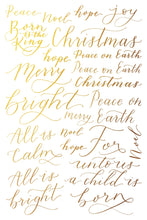 Peace Noel hope Joy
Born is the King Christmas
hope Peace on Earth
Merry Peace on Earth
Christmas
bright Peace on
merry Earth
All is noel hope For Noel
Calm unto us
All is a child is
bright born